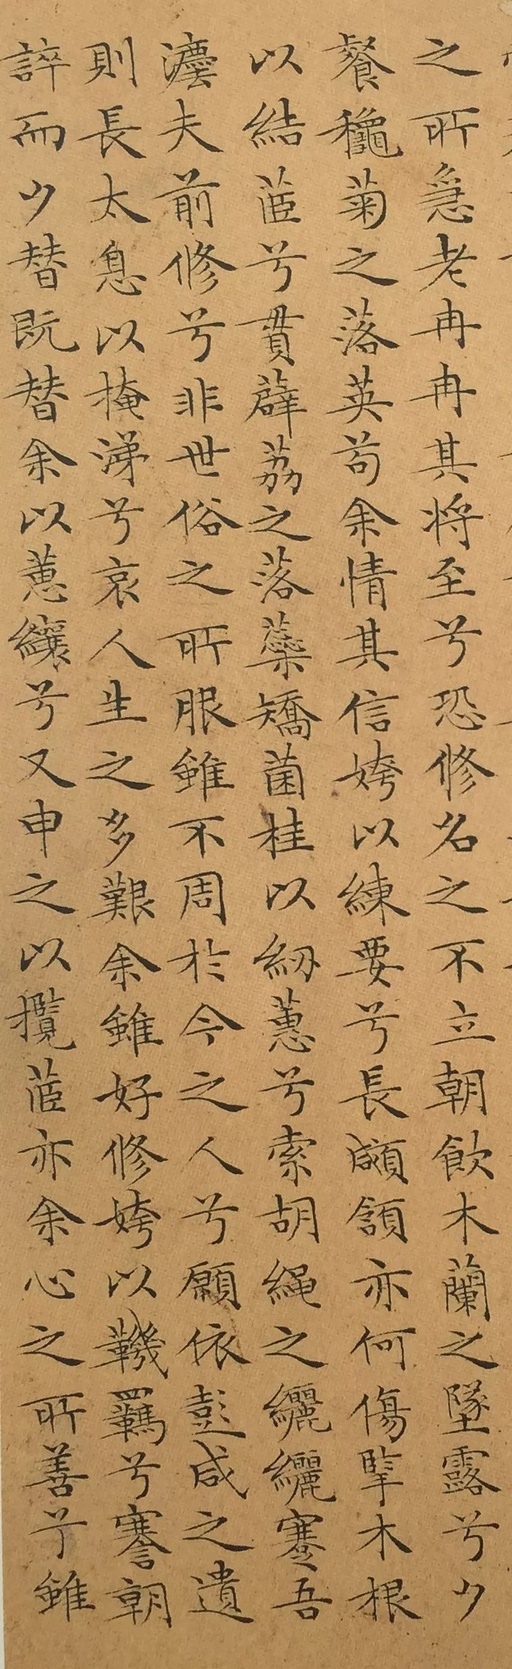 之所急老冉冉其将至兮恐修名之不立朝飲木蘭之墜露兮夕
餐穐菊之落英苟余情其信姱以練要兮長顑頷亦何傷擥木根
以結茝兮貫薜荔之落蘂矯菌桂以紉蕙兮索胡繩之纚纚謇吾
灋夫前修兮非世俗之所服雖不周於今之人兮願依彭咸之遺
則長太息以掩涕兮哀人生之多艱余雖好修姱以鞿羈兮謇朝
誶而夕替既替余以蕙纕兮又申之以攬茝亦余心之所善兮雖